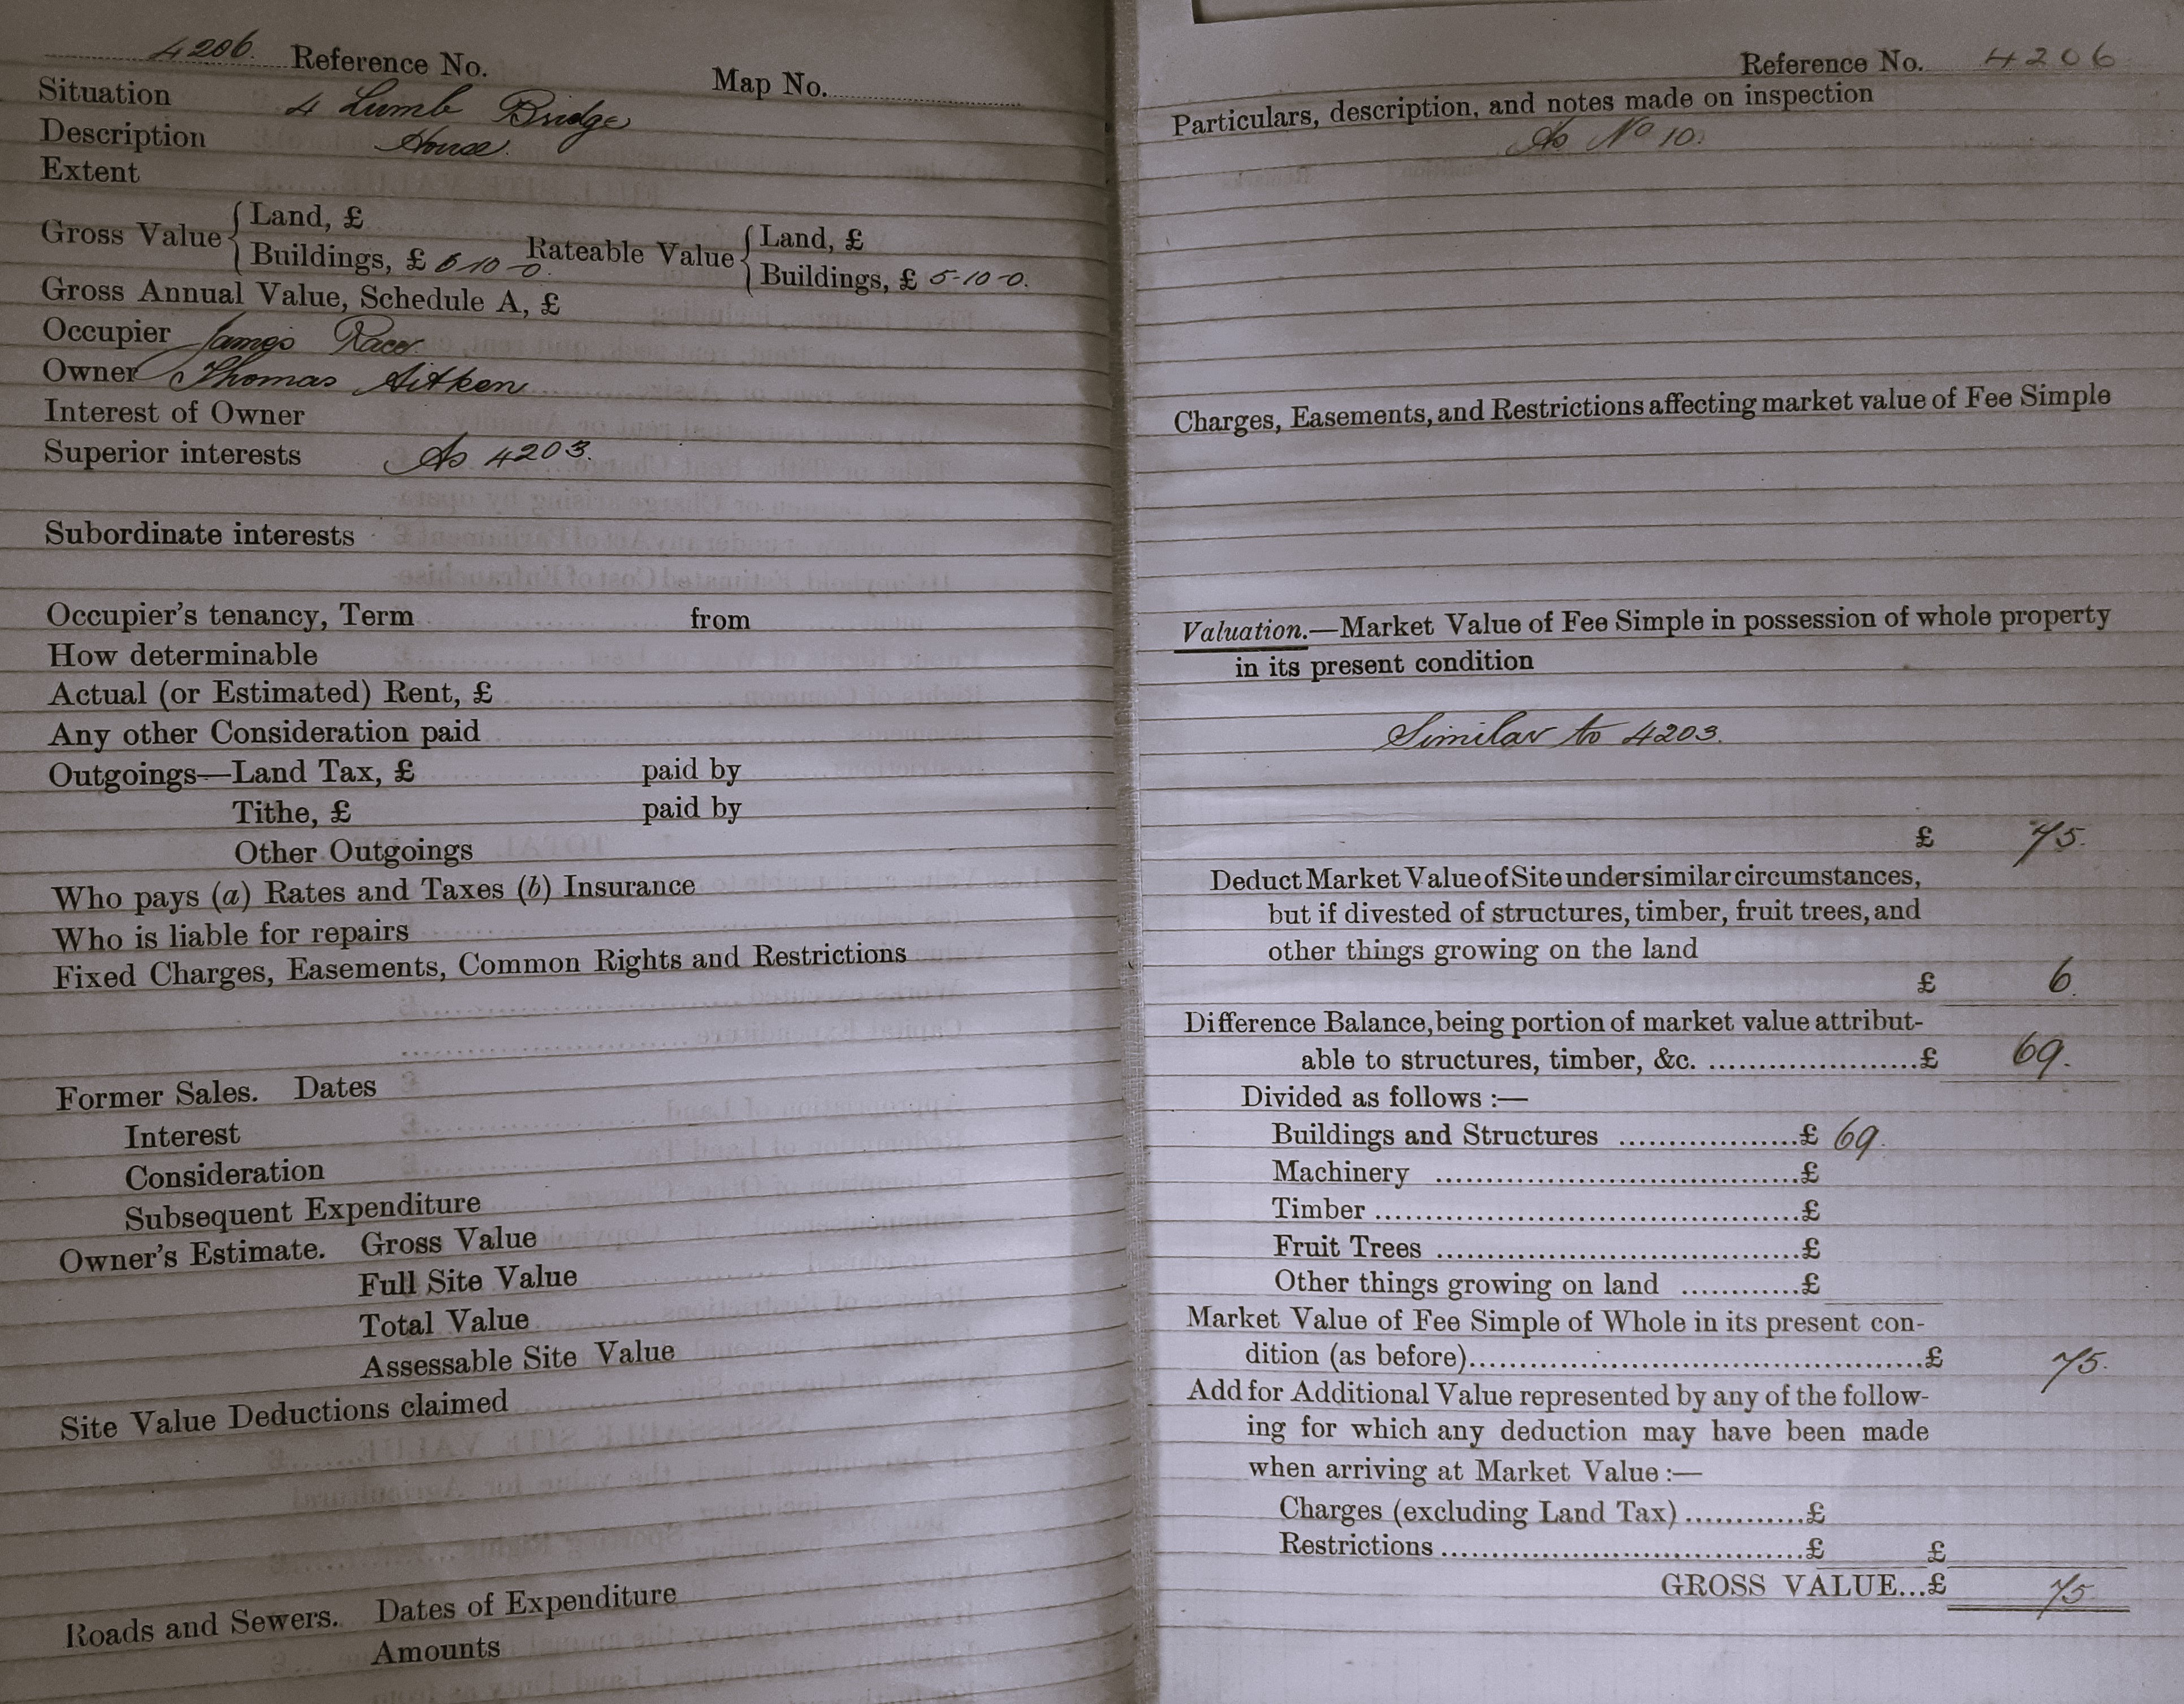 4206. Reference No. Map No.
Situation 4 Lumb Bridge
Description House.
Extent
Gross Value { Land, £
Buildings, £ 6-10-0. Rateable Value { Land, £
Buildings, £ 5-10-0.
Gross Annual Value, Schedule A, £
Occupier James
Owner Thomas Aitken
Interest of Owner
Superior interests As 4203.
Subordinate interests
Occupier's tenancy, Term from
How determinable
Actual (or Estimated) Rent, £
Any other Consideration paid
Outgoings—Land Tax, £ paid by
Tithe, £ paid by
Other Outgoings
Who pays (a) Rates and Taxes (b) Insurance
Who is liable for repairs
Fixed Charges, Easements, Common Rights and Restrictions
Former Sales. Dates
Interest
Consideration
Subsequent Expenditure
Owner's Estimate. Gross Value
Full Site Value
Total Value
Assessable Site Value
Site Value Deductions claimed
Roads and Sewers. Dates of Expenditure
Amounts
Reference No. 4206
Particulars, description, and notes made on inspection
As No 10.
Charges, Easements, and Restrictions affecting market value of Fee Simple
Valuation.—Market Value of Fee Simple in possession of whole property
in its present condition
Similar to 4203.
£ 75.
Deduct Market Value of Site under similar circumstances,
but if divested of structures, timber, fruit trees, and
other things growing on the land
£ 6.
Difference Balance, being portion of market value attribut-
able to structures, timber, &c. ..........£ 69.
Divided as follows :—
Buildings and Structures ..........£ 69.
Machinery ..........£
Timber ..........£
Fruit Trees ..........£
Other things growing on land ..........£
Market Value of Fee Simple of Whole in its present con-
dition (as before)..........£ 75.
Add for Additional Value represented by any of the follow-
ing for which any deduction may have been made
when arriving at Market Value :—
Charges (excluding Land Tax) ..........£
Restrictions ..........£ £
GROSS VALUE...£ 75